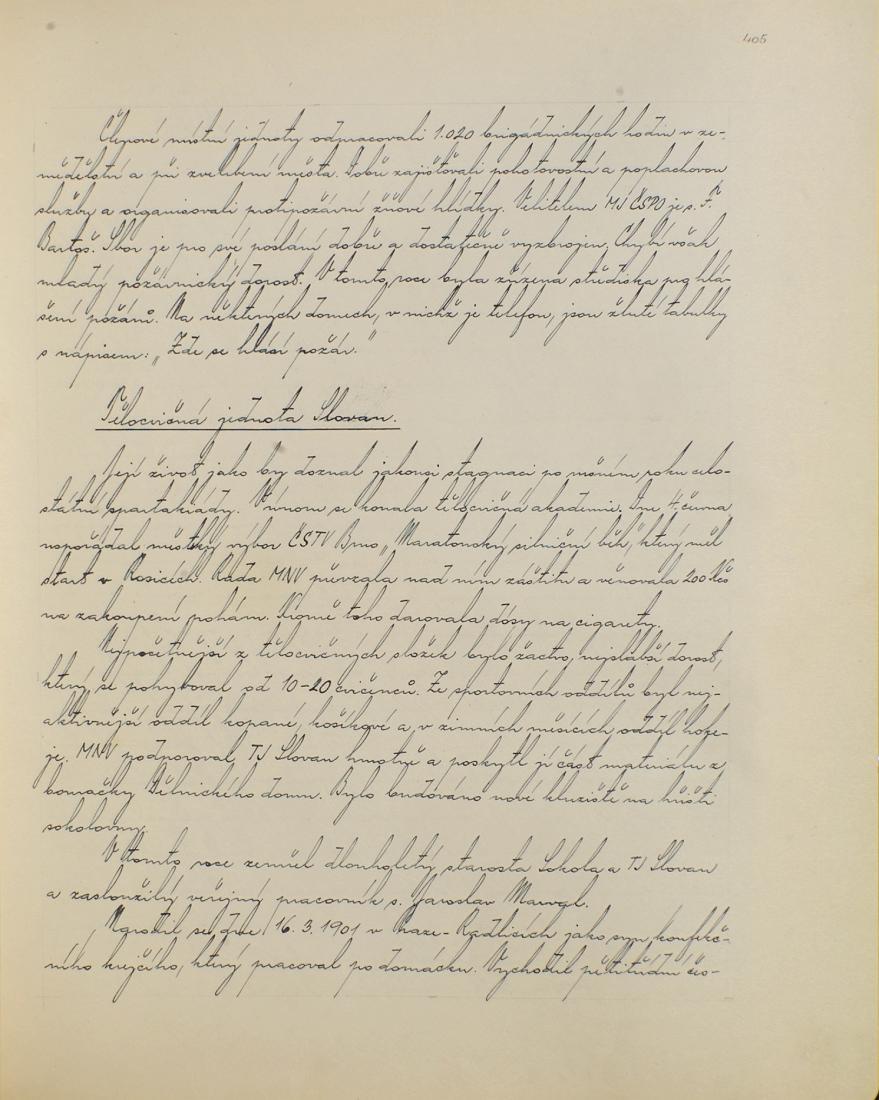 405
Členové místní jednoty odpracovali 1.020 brigádnických hodin v ze-
mědělství a při zvelebení města. Dobře zajišťovali pohotovostní a poplachovou
službu a organisovali protipožární žňové hlídky. Velitelem MJ ČSPO je s. F.
Bartoš. Sbor je pro své poslání dobře a dostatečně vyzbrojen. Chybí však
mladý požárnický dorost. V tomto roce byla zřízena střediska pro hlá-
šení požárů. Na některých domech, v nichž je telefon, jsou žluté tabulky
s nápisem: „Zde se hlásí požár."
Tělocvičná jednota Slovan.
Její život jako by doznal jakousi stagnaci po měném roku celo-
státní spartakiády. V únoru se konala tělocvičná akademie. Dne 4. června
uspořádal městský výbor ČSTV Brno „Maratonský silniční běh", který měl
start v Rosicích. Rada MNV převzala nad ním záštitu a věnovala 200 Kčs
na zakoupení pohárů. Kromě toho darovala dósy na cigarety.
Nejpočetnější z tělocvičných složek bylo žactvo, nejslabší dorost,
který se pohyboval od 10-20 cvičenců. Ze sportovních oddílů byl nej-
aktivnější oddíl kopané, košíkové a v zimních měsících oddíl hoke-
je. MNV podporoval TJ Slovan hmotně a poskytl jí část materiálu z
bouračky Dělnického domu. Bylo budováno nové kluziště na hřišti
sokolovny.
V tomto roce zemřel dlouholetý starosta Sokola a TJ Slovan
a zasloužilý veřejný pracovník s. Jaroslav
Narodil se dne 16. 3. 1901 v Praze-Radlicích jako syn konfekč-
ního krejčího, který pracoval po domácku. Vychodil pětitřídní čes-